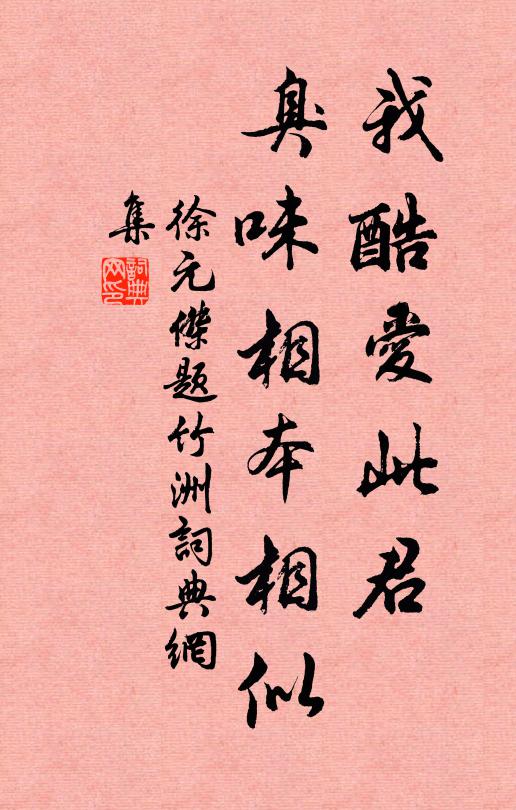 我酷愛此君
臭味相本相似
徐元傑題竹洲詞典網
集
詞典網印